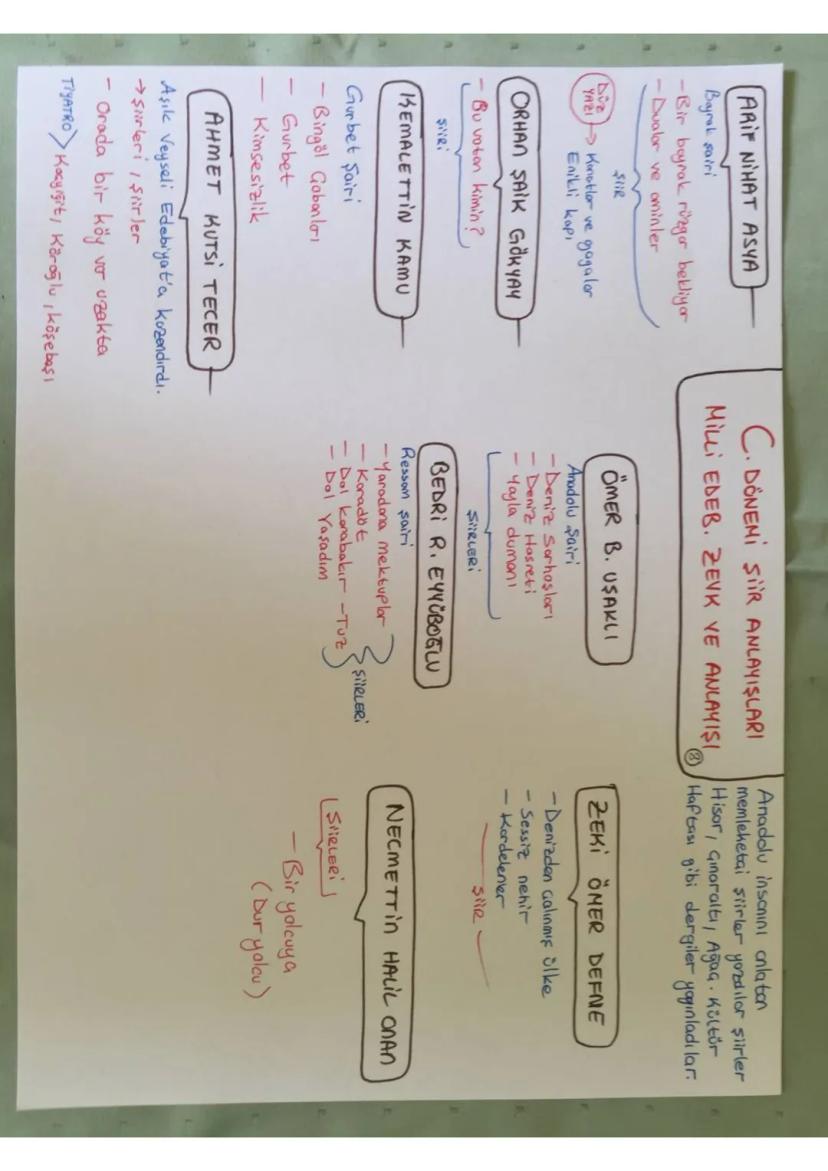 C. DÖNEMİ ŞİİR ANLAYIŞLARI
MİLLİ EDEB. ZEVK VE ANLAYIŞI
8
Anadolu insanını anlatan
memleketçi şiirler yazdılar şiirler
Hisar, Çınaraltı, Ağaç. Kültür
Haftası gibi dergiler yayınladılar.
ARİF NİHAT ASYA
Bayrak şairi
- Bir bayrak rüzgar bekliyor
- Dualar ve aminler
ŞİİR
DÜZ
YAZI
→ Kanatlar ve gagalar
Enikli kapı
ORHAN ŞAİK GÖKYAY
- Bu vatan kimin?
ŞİİRİ
KEMALETTİN KAMU
Gurbet şairi
- Bingöl Çobanları
- Gurbet
- Kimsesizlik
AHMET KUTSİ TECER
Aşık Veyseli Edebiyat'a kazandırdı.
→ şiirleri, şiirler
- Orada bir köy var uzakta
TİYATRO > Koçyiğit, Köroğlu, Köşebaşı
ÖMER B. UŞAKLI
Anadolu şairi
- Deniz Sarhoşları
- Deniz Hasreti
- Yayla dumanı
ŞİİRLERİ
BEDRİ R. EYYÜBOĞLU
Ressam şairi
- Yaradana mektuplar
- Karadut
- Dol karabakır - Tuz
- Dol Yaşadım
ŞİİRLERİ
ZEKİ ÖMER DEFNE
- Denizden çalınmış ülke
- Sessiz nehir
- Kardelenler
ŞİİR
NECMETTİN HALİL ONAN
ŞİİRLERİ
- Bir yolcuya
(Dur yolcu)